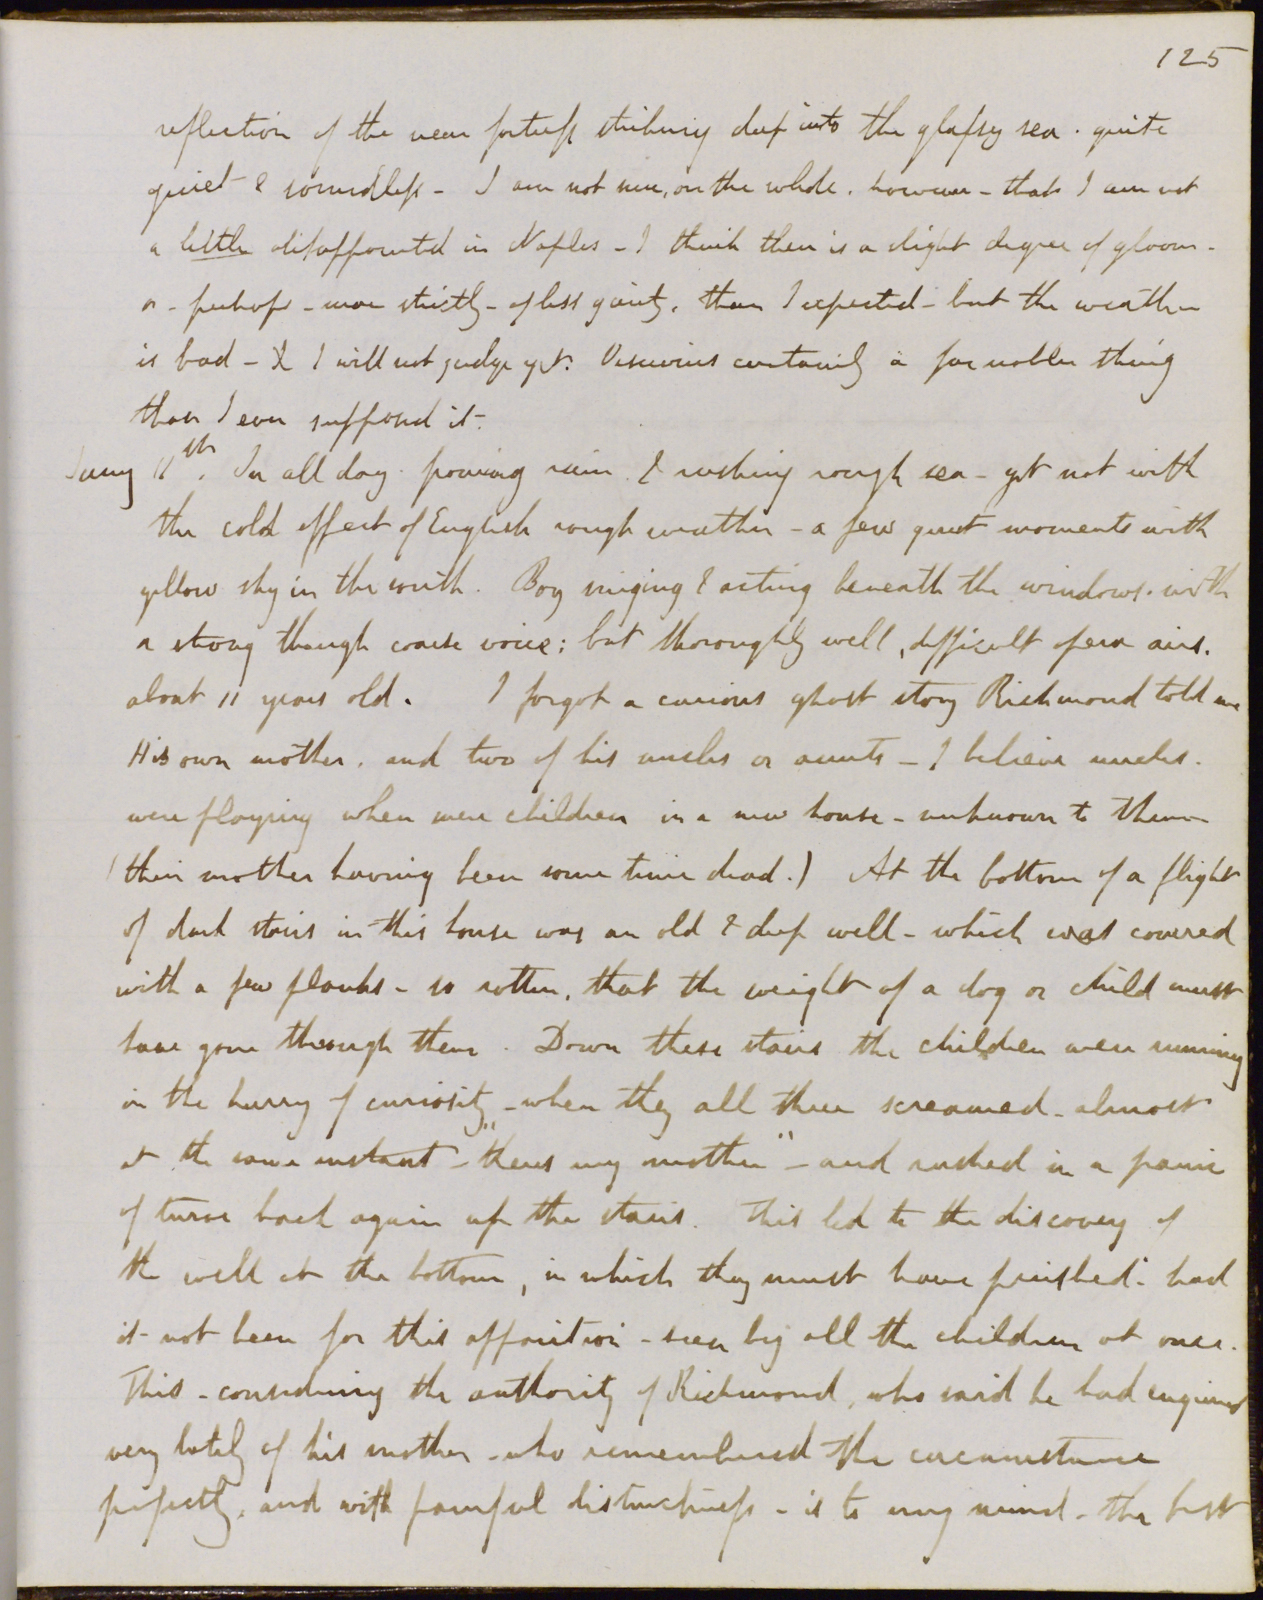 125
reflection of the near fortress striking deep into the glassy sea. quite
quiet & soundless - I am not sure, on the whole. however - that I am not
a little disappointed in Naples - I think there is a slight degree of gloom -
or - perhaps - more strictly - of less gaiety. than I expected - but the weather
is bad - & I will not judge yet. Vesuvius certainly a far nobler thing
than I ever supposed it.
11th. In all day. pouring rain & rushing rough sea - yet not with
the cold effect of English rough weather - a few quiet moments with
yellow sky in the south. Boy singing & acting beneath the windows. with
a strong though coarse voice; but thoroughly well, difficult opera airs.
about 11 years old. I forgot a curious ghost story Richmond told me
His own mother. and two of his uncles or aunts - I believe uncles.
were playing when were children in a new house - unknown to them -
(their mother having been some time dead.) At the bottom of a flight
of dark stairs in this house was an old & deep well - which was covered
with a few planks - so rotten, that the weight of a dog or child must
have gone through them. Down these stairs the children were running
in the hurry of curiosity - when they all three screamed - almost
at the same instant - "theres my mother" - and rushed in a panic
of turn back again up the stairs. This led to the discovery of
the well at the bottom, in which they must have perished - had
it not been for this apparition - seen by all the children at once.
This - considering the authority of Richmond, who said he had enquired
very lately of his mother - who remembered the circumstance
perfectly, and with painful distinctness - is to my mind - the best